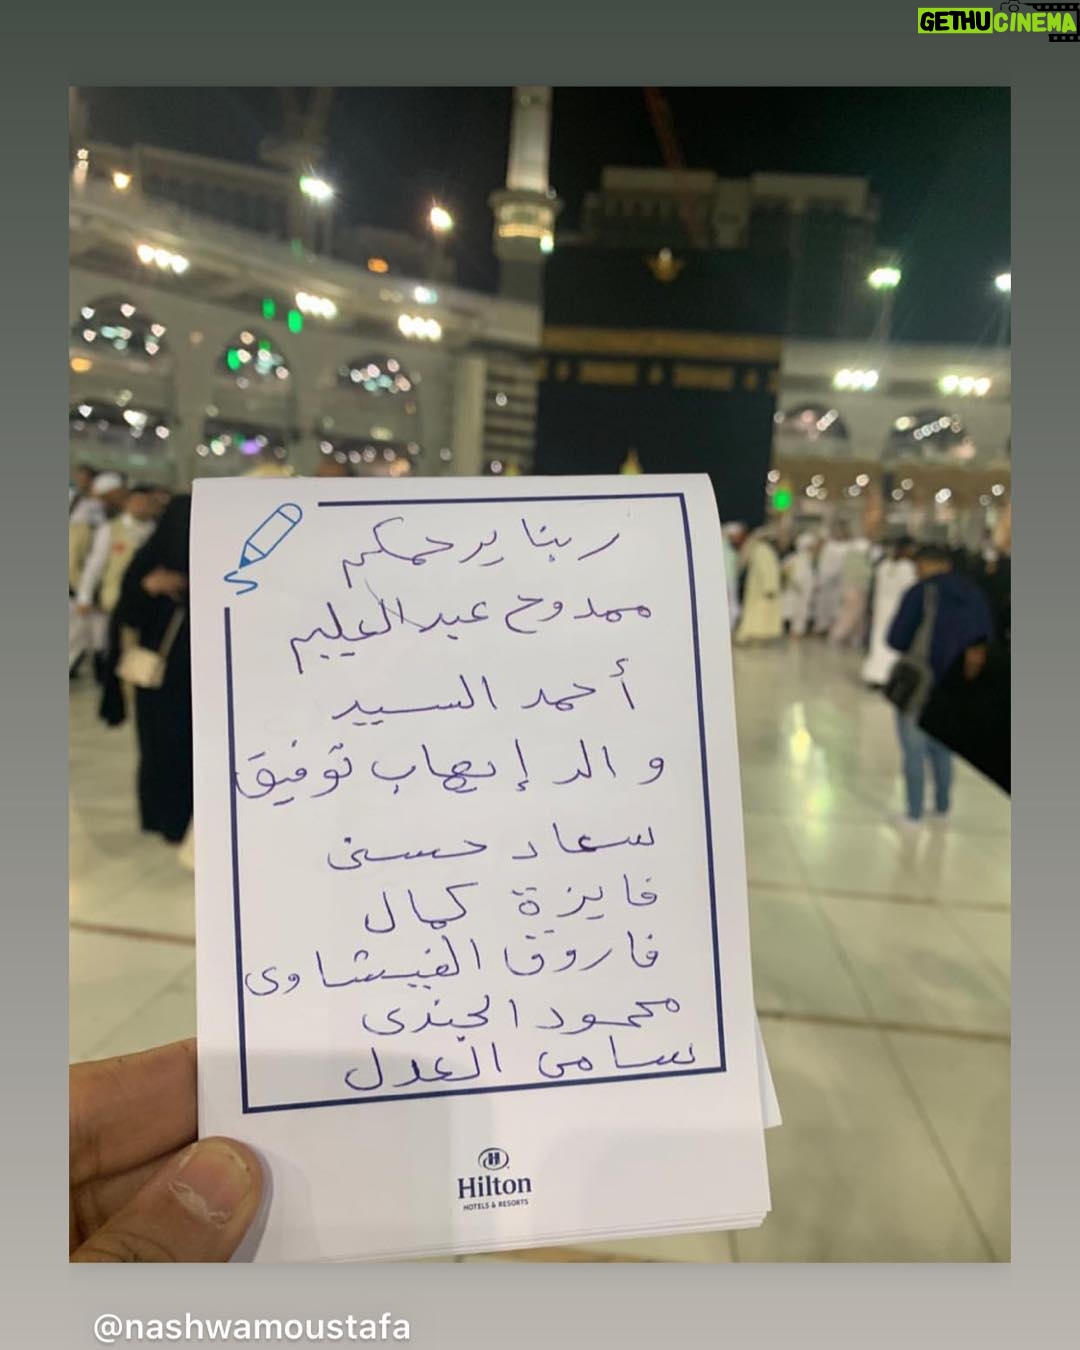 GETHUCINEMA
ربنا يرحمكم
ممدوح عبد العليم
أحمد السيد
والد إيهاب توفيق
سعاد حسنى
فايزة كمال
فاروق الفيشاوى
محمود الجندى
سامى العدل
H
Hilton
HOTELS & RESORTS
@nashwamoustafa